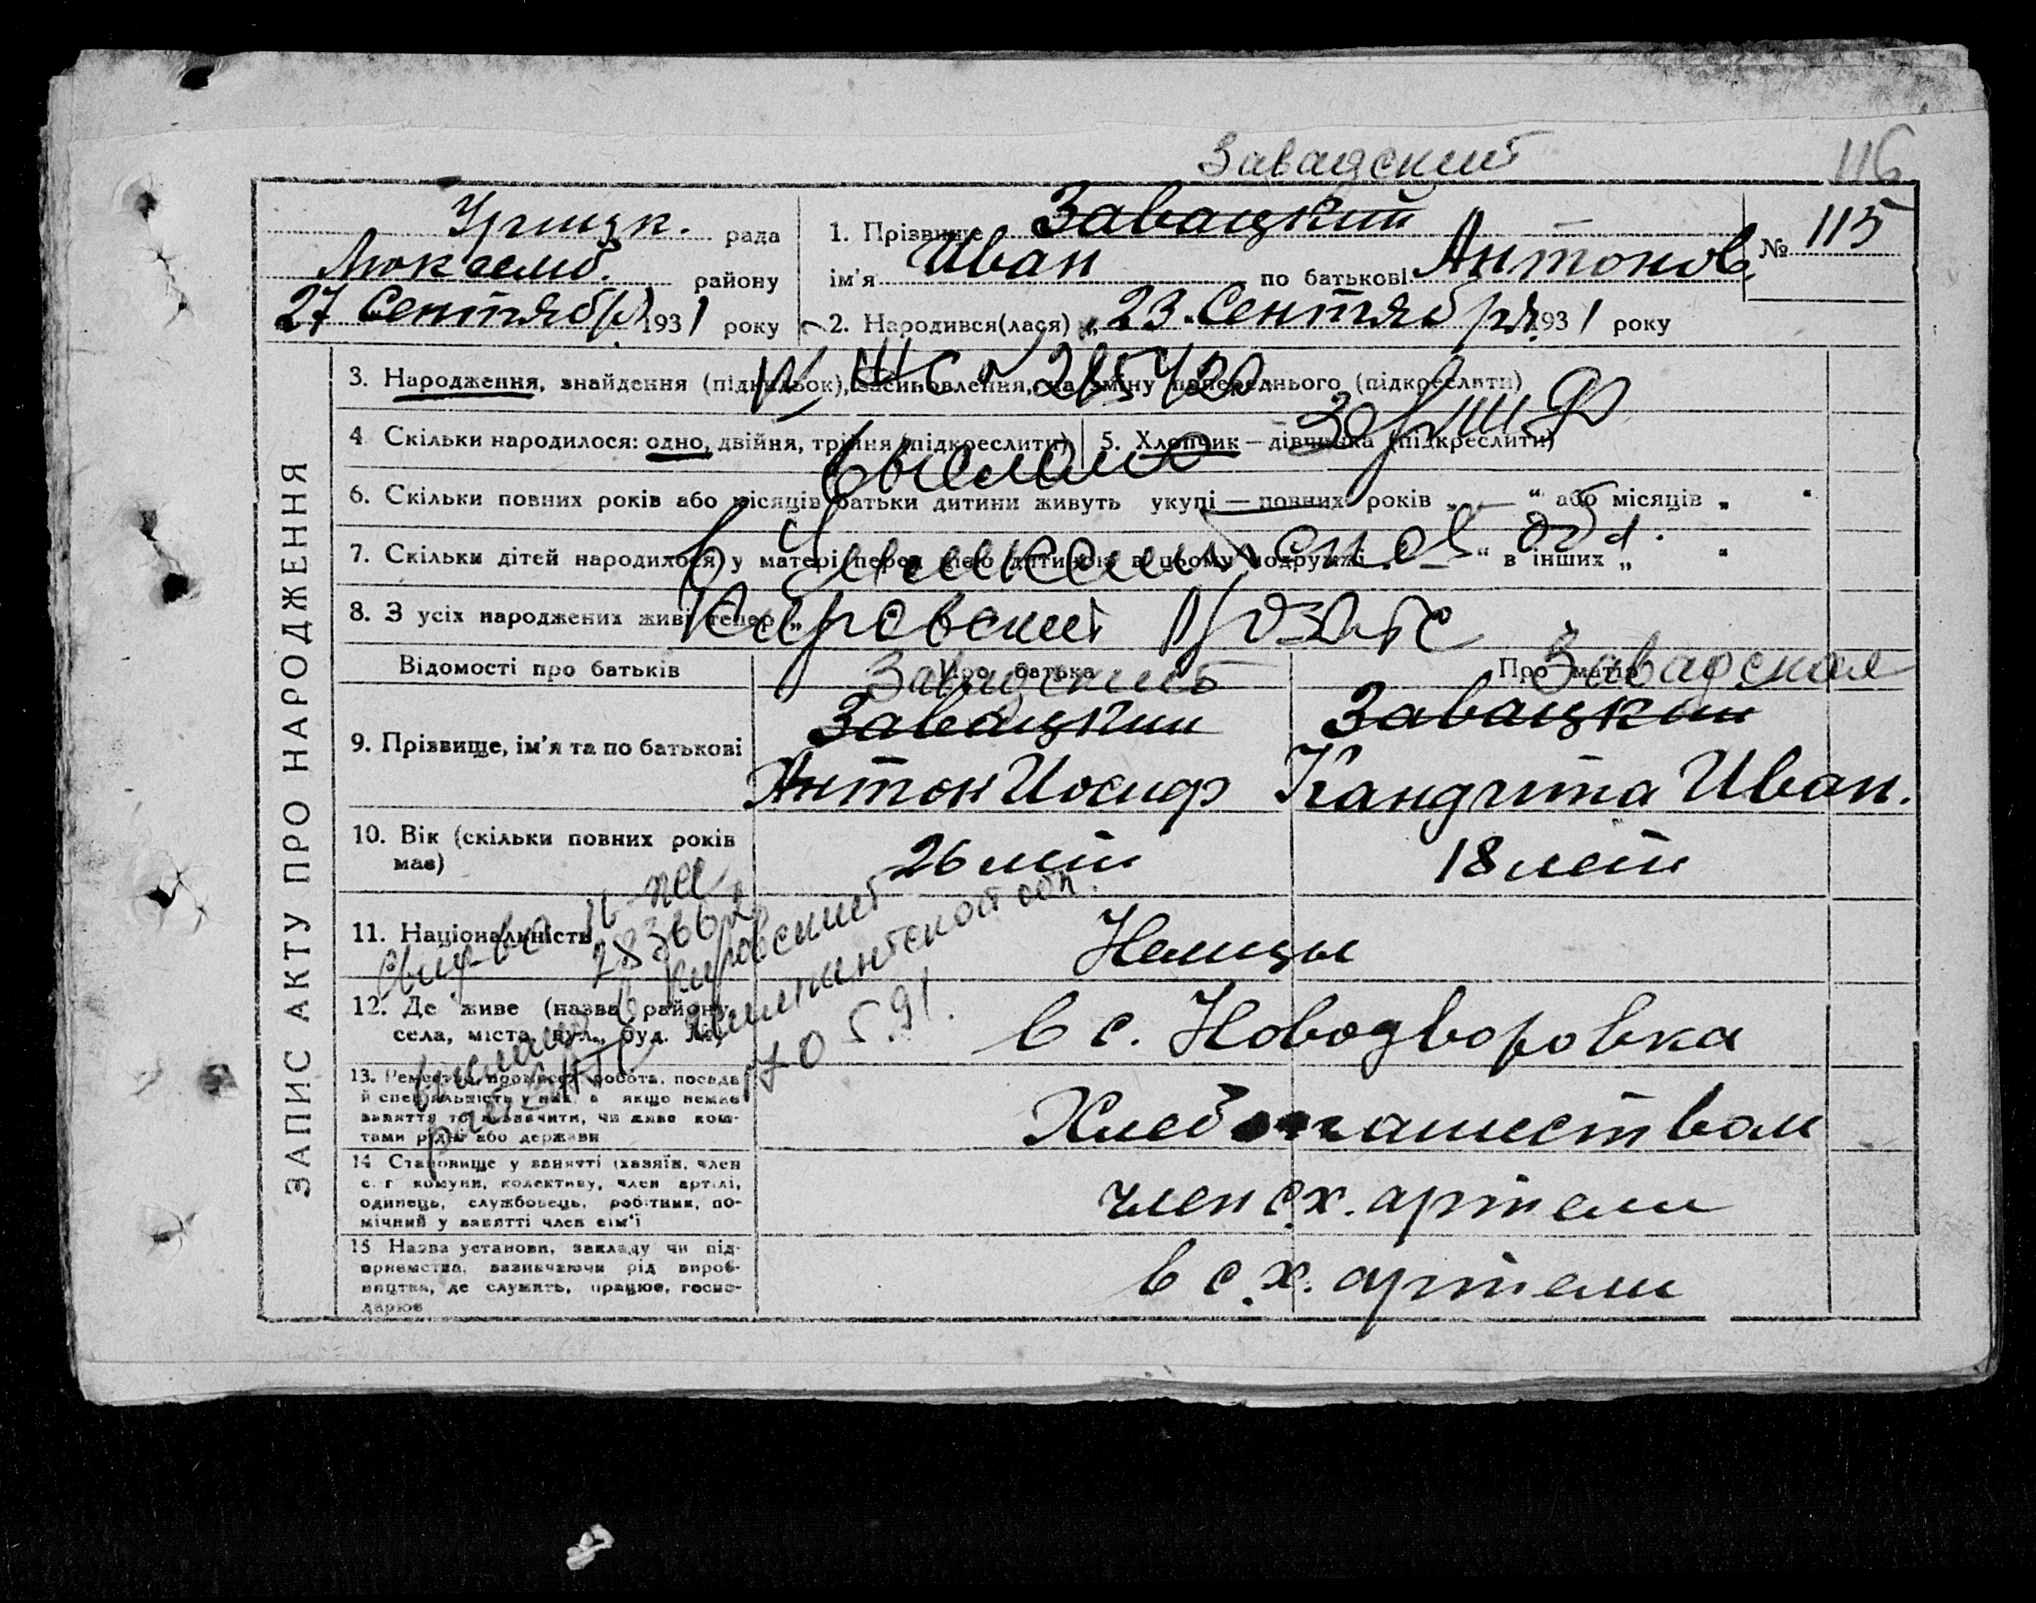 Завадский
116
Урицк. рада
Люксемб. району
27 Сентябр. 1931 року
1. Прізвище Завацкий
ім'я Иван по батькові Антонов.
№ 115
2. Народився(лася) „23 Сентября 1931 року
ЗАПИС АКТУ ПРО НАРОДЖЕННЯ
3. Народження, знайдення (підкидьок), засиновлення, на зміну попереднього (підкреслити)
4 Скільки народилося: одно, двійня, трійня (підкреслити)
5. Хлопчик — дівчинка (підкреслити)
выслано
6. Скільки повних років або місяців батьки дитини живуть укупі — повних років „ — “ або місяців „ “
7. Скільки дітей народилося у матері перед цією дитиною в цьому подружжі „ — “ в інших „ “
в Чимкентской обл.
8. З усіх народжених живі тепер „
Кировский
Відомості про батьків
Про батька
Про матір
Завадский
Завадская
9. Прізвище, ім'я та по батькові
Завацкии
Антон Иосиф
Завацкии
Кандгита Иван.
10. Вік (скільки повних років має)
26 лет
18 лет
11. Національність
Немцы
Свид-во
283662
выслано в Кировский
райЗАГС Чимкентской обл.
12. Де живе (назва району, села, міста, вул., буд. №)
в с. Новодворовка
13. Ремество, промисел, робота, посада
й спеціяльність у них, а якщо немає
заняття то зазначити, чи живе кош-
тами рідні або держави
Хлебопашеством
14 Становище у занятті (хазяїн, член
с. г комуни, колективу, член артілі,
одинець, службовець, робітник, по-
мічний у занятті член сім'ї
член с.х. артели
15 Назва установи, закладу чи під-
приємства, зазначаючи рід вироб-
ництва, де служить, працює, госпо-
дарює
в с.х. артели